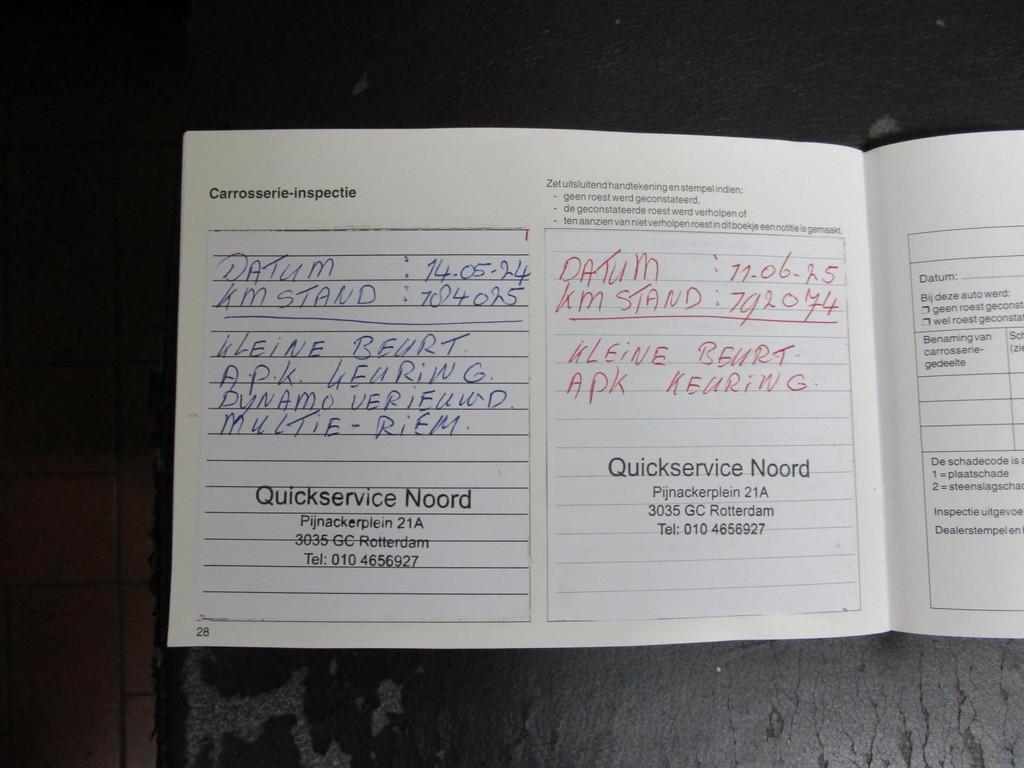 Carrosserie-inspectie
Zet uitsluitend handtekening en stempel indien:
- geen roest werd geconstateerd,
- de geconstateerde roest werd verholpen of
- ten aanzien van niet verholpen roest in dit boekje een notitie is gemaakt.
DATUM : 14-05-24
KM STAND : 784025
KLEINE BEURT.
A.P.K. KEURING.
DYNAMO VERIEUWD.
MULTIE-RIEM.
Quickservice Noord
Pijnackerplein 21A
3035 GC Rotterdam
Tel: 010 4656927
28
DATUM : 11-06-25
KM STAND : 792074
KLEINE BEURT-
APK KEURING.
Quickservice Noord
Pijnackerplein 21A
3035 GC Rotterdam
Tel: 010 4656927
Datum: ....................
Bij deze auto werd:
geen roest geconst
wel roest geconstat
Benaming van
carrosserie-
gedeelte
Sc
(zie
De schadecode is a
1 = plaatschade
2 = steenslagschad
Inspectie uitgevoe
Dealerstempel en